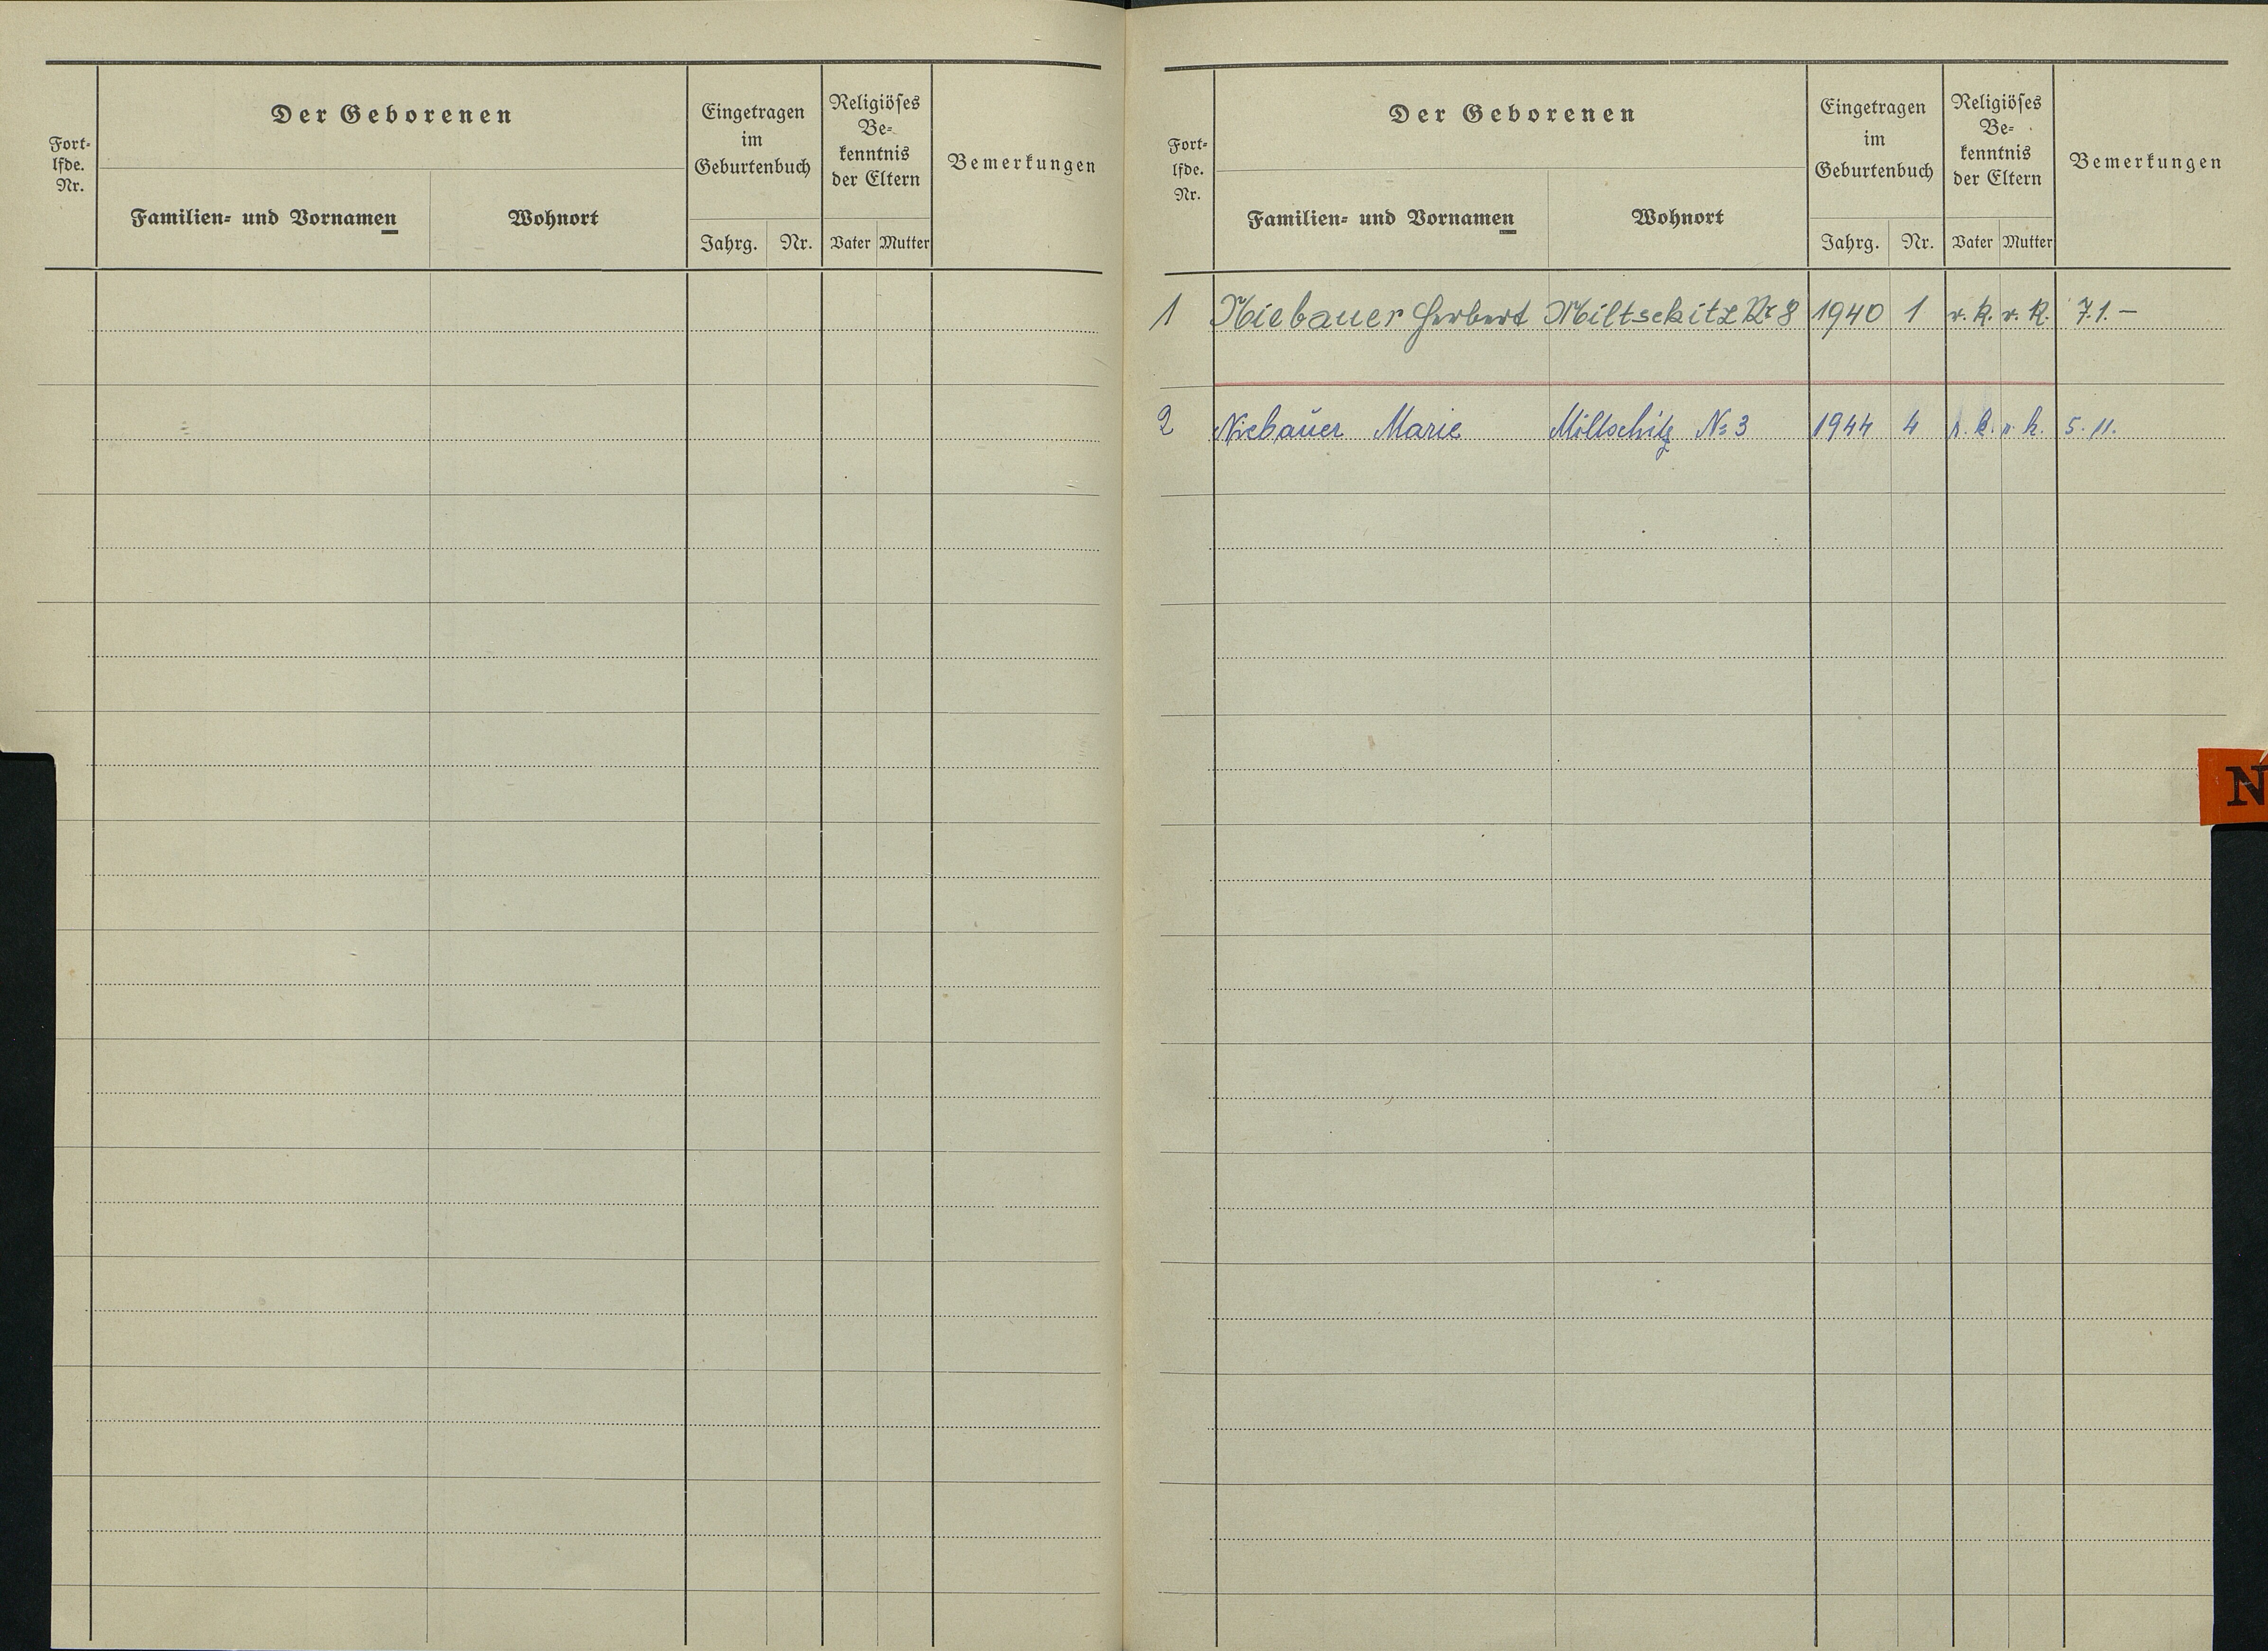 Fort-
lfde.
Nr.
Der Geborenen
Familien- und Vornamen
Wohnort
Eingetragen
im
Geburtenbuch
Jahrg. Nr.
Religiöses
Be-
kenntnis
der Eltern
Vater Mutter
Bemerkungen
Fort-
lfde.
Nr.
Der Geborenen
Familien- und Vornamen
Wohnort
Eingetragen
im
Geburtenbuch
Jahrg. Nr.
Religiöses
Be-
kenntnis
der Eltern
Vater Mutter
Bemerkungen
1 Niebauer Herbert Miltschitz Nr 8 1940 1 r. k. r. k. 7.1. –
2 Niebauer Marie Miltschitz No 3 1944 4 r. k. r. k. 5. 11.
N